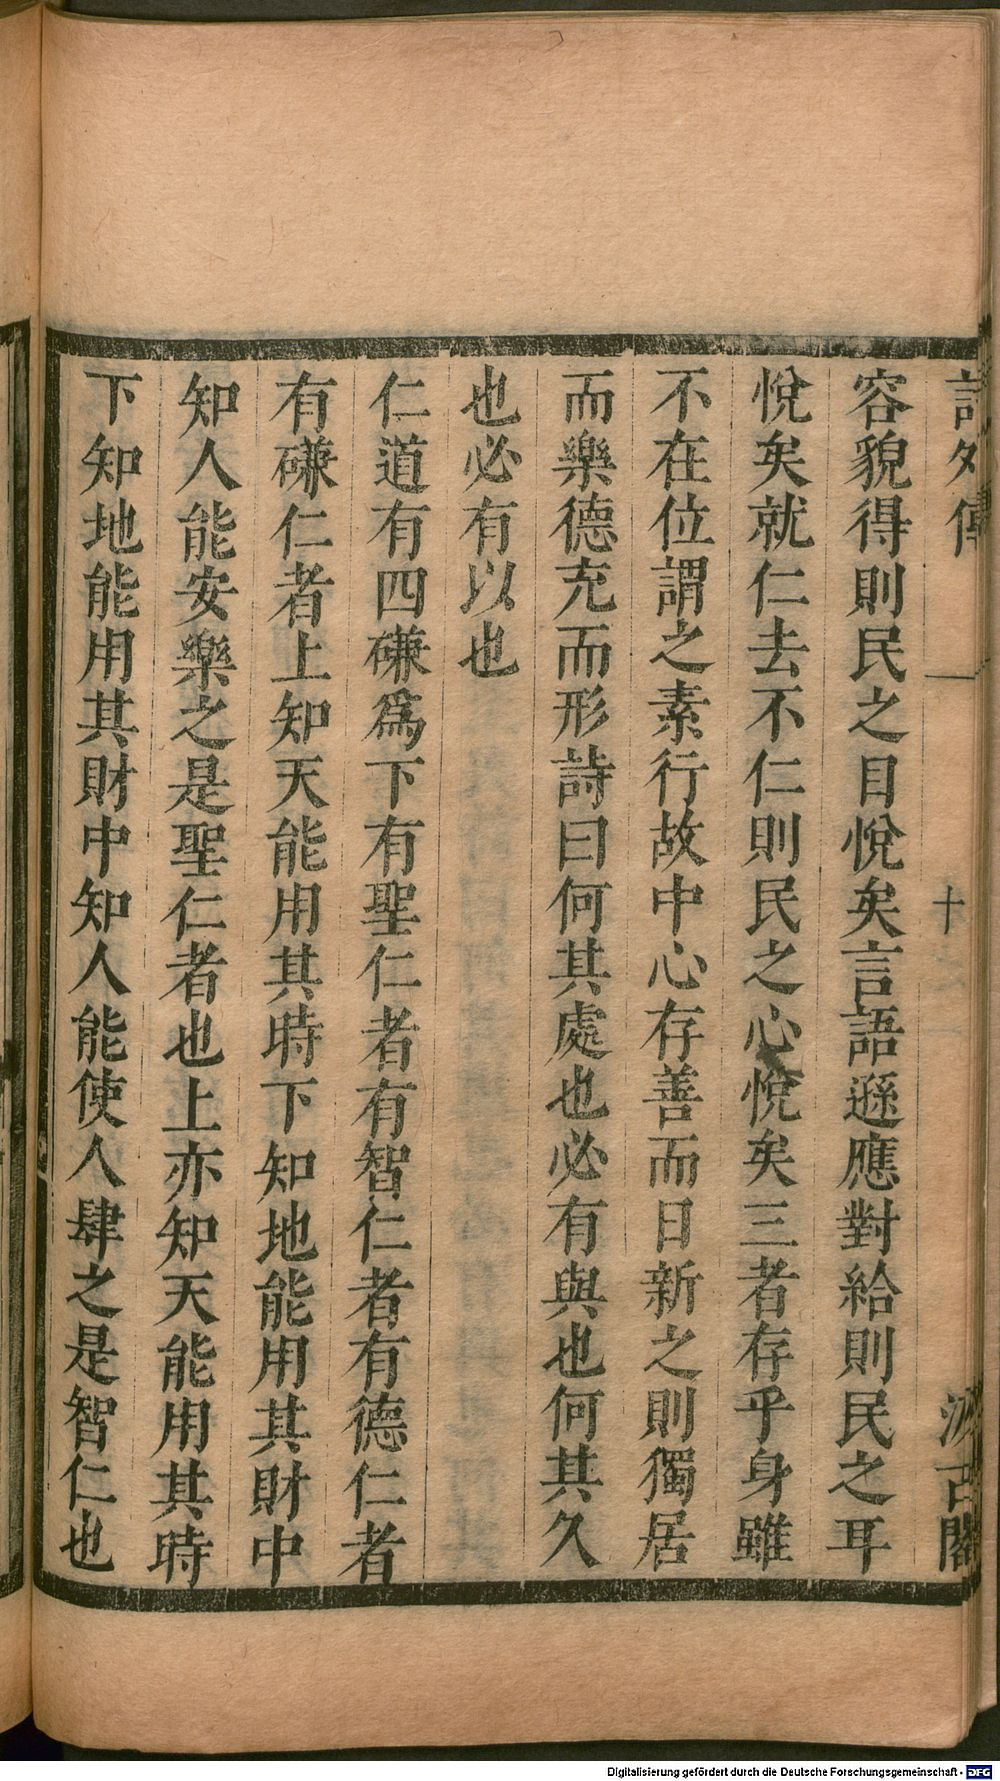 詩外傳 一 十 汲古閣
容貌得則民之目悅矣言語遜應對給則民之耳
悅矣就仁去不仁則民之心悅矣三者存乎身雖
不在位謂之素行故中心存善而日新之則獨居
而樂德充而形詩曰何其處也必有與也何其久
也必有以也
仁道有四磏爲下有聖仁者有智仁者有德仁者
有磏仁者上知天能用其時下知地能用其財中
知人能安樂之是聖仁者也上亦知天能用其時
下知地能用其財中知人能使人肆之是智仁也
Digitalisierung gefördert durch die Deutsche Forschungsgemeinschaft - DFG